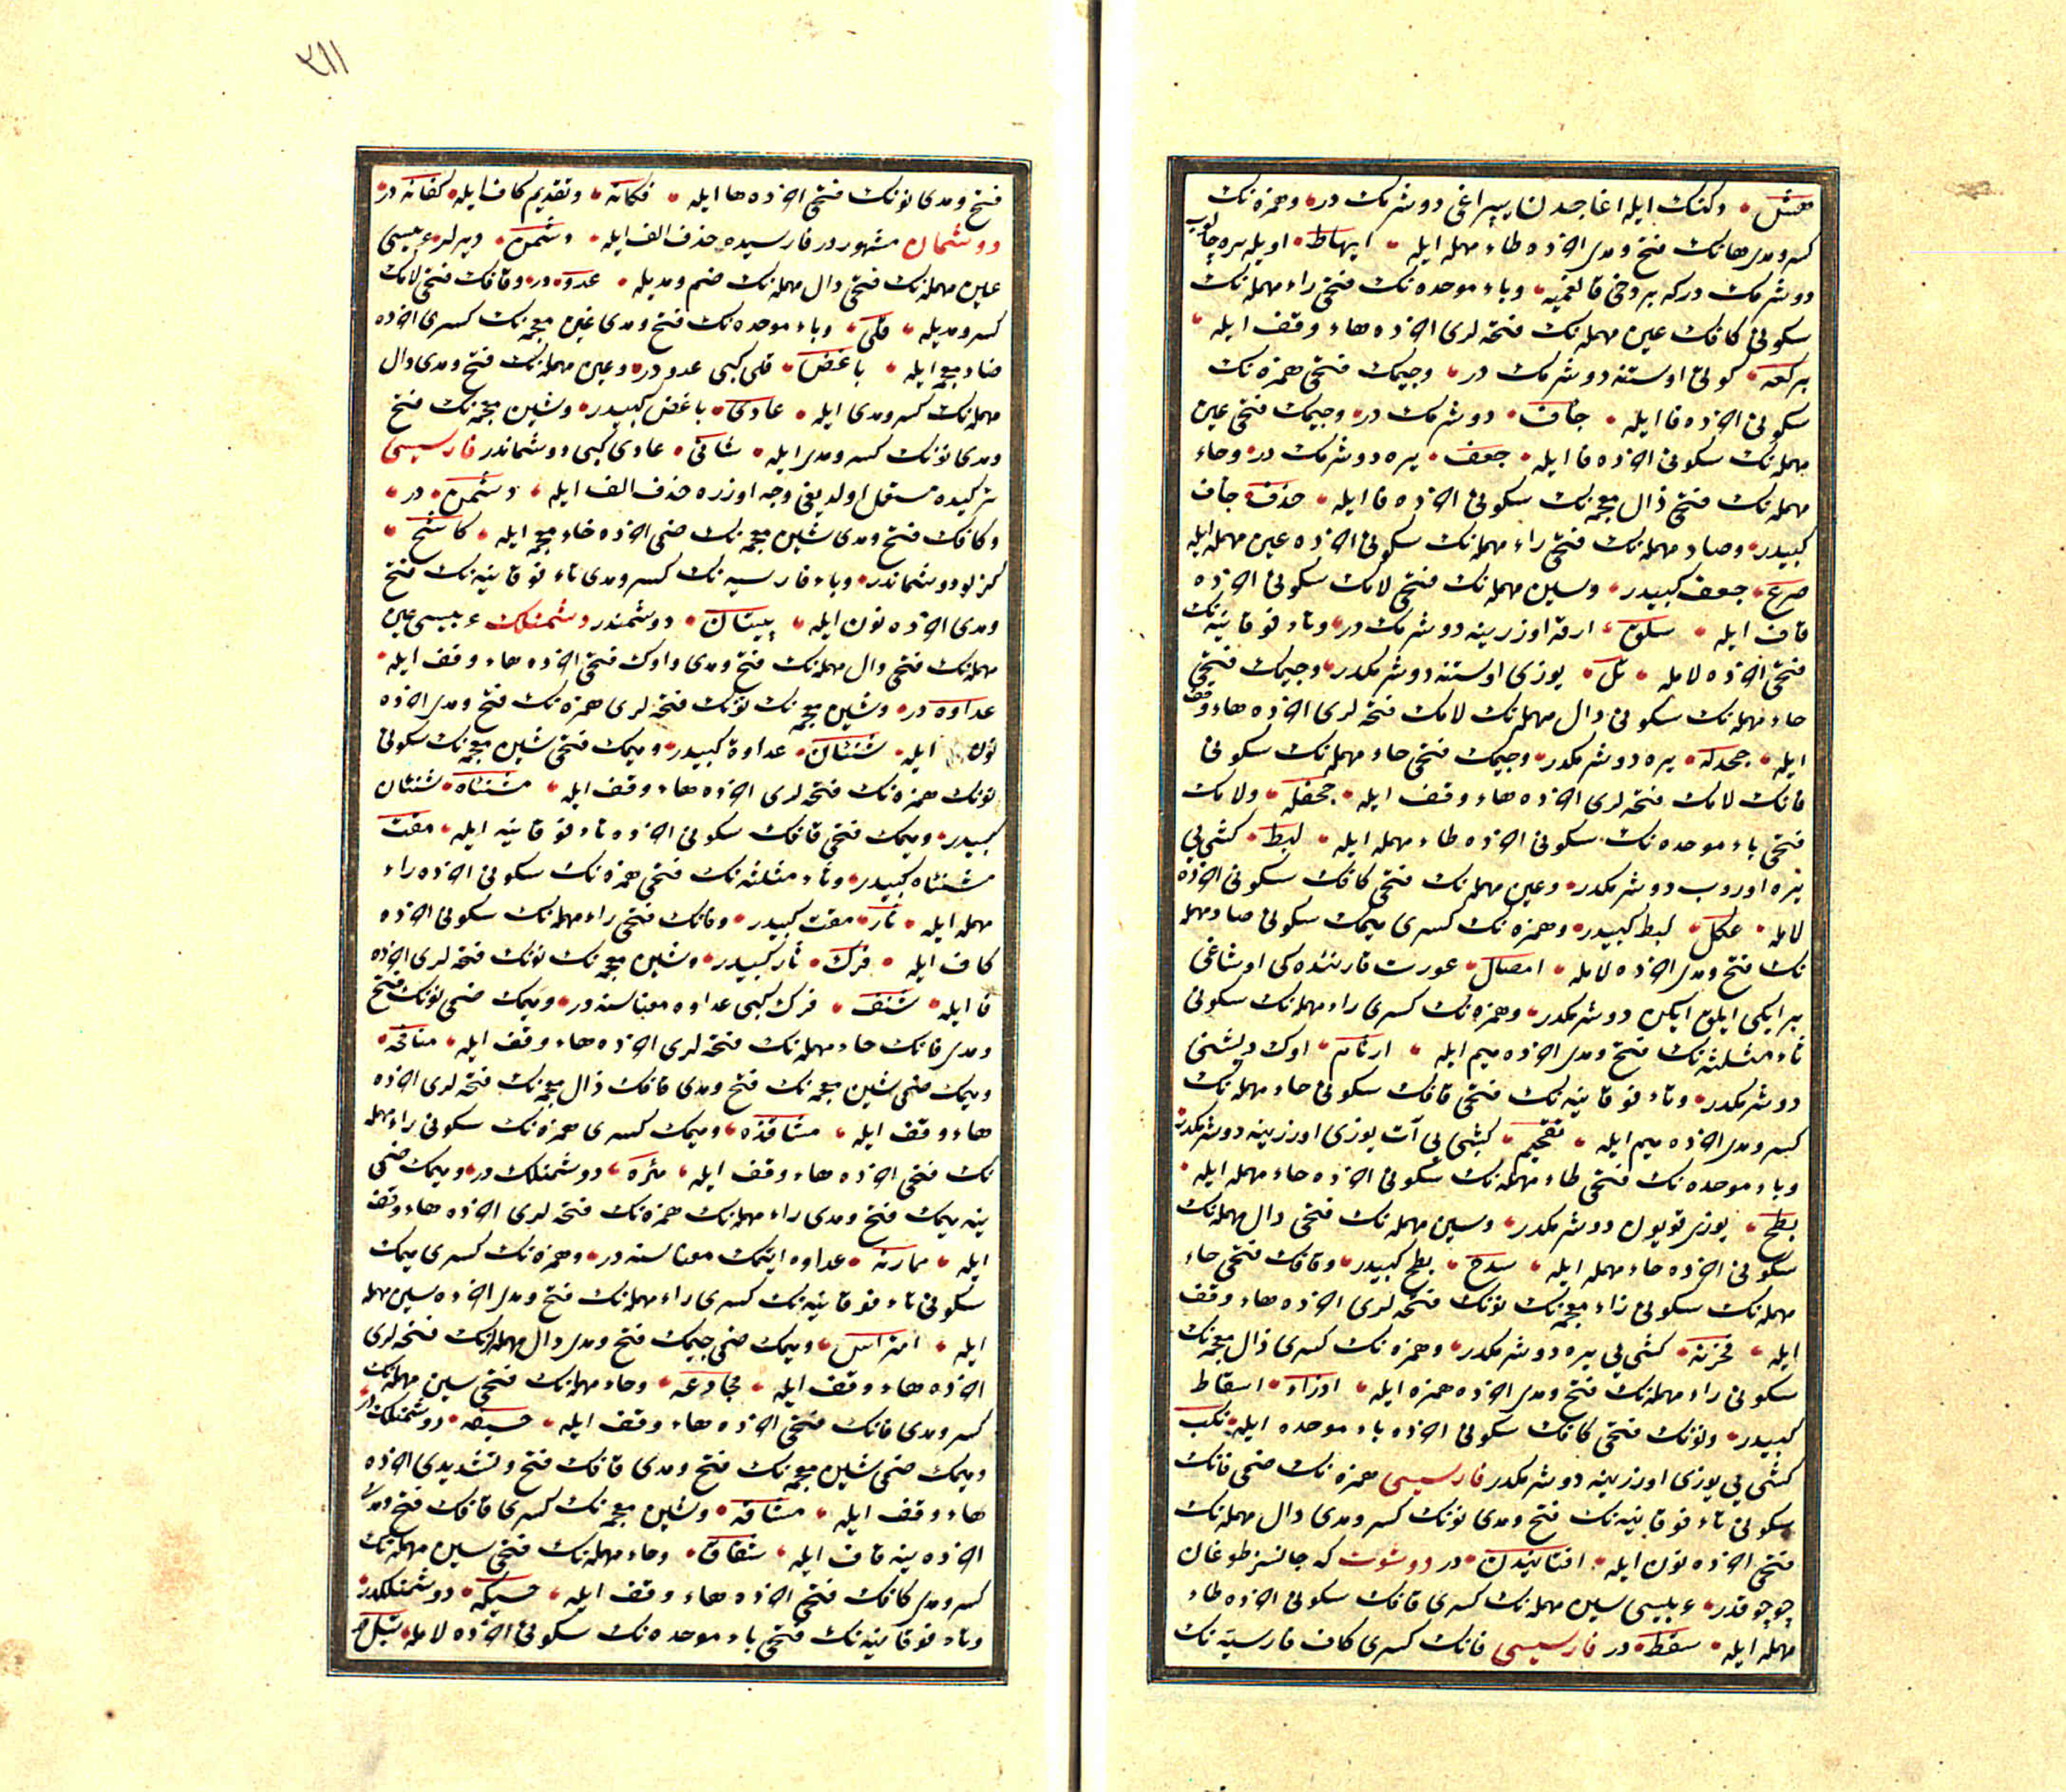 هشّ وكنك ايله اغاجدن يپراغى دوشرمك در وهمزه نك
كسر ومدى هانك فتح ومدى اخرده طاء مهمله ايله ايهاط اويله يره چالوب
دوشرمك دركه بر دخى قالقميه وباء موحده نك فتحى راء مهمله نك
سكونى كافك عين مهمله نك فتحه لرى اخرده هاء وقف ايله
بركعه اوستنه دوشرمك در وجيمك فتحى همزه نك
سكونى اخرده فا ايله جأف دوشرمك در وجيمك فتحى عين
مهمله نك سكونى اخرده فا ايله جعف يره دوشرمك در وحاء
مهمله نك فتحى ذال معجمه نك سكونى اخرده فا ايله حذف جأف
كبيدر وصاد مهمله نك فتحى راء مهمله نك سكونى اخرده عين مهمله ايله
صرع جعف كبيدر وسين مهمله نك فتحى لامك سكونى اخرده
قاف ايله سلق ارقه اوزرينه دوشرمك در وتاء فوقانيه نك
فتحى اخرده لامله تلّ يوزى اوستنه دوشرمكدر وجيمك فتحى
حاء مهمله نك سكونى دال مهمله نك لامك فتحه لرى اخرده هاء وقف
ايله جحدله يره دوشرمكدر وجيمك فتحى حاء مهمله نك سكونى
فانك لامك فتحه لرى اخرده هاء وقف ايله جحفله ولامك
فتحى باء موحده نك سكونى اخرده طاء مهمله ايله لبط كشى يى
يره اوروب دوشرمكدر وعين مهمله نك فتحى كافك سكونى اخرده
لامله عكل لبط كبيدر وهمزه نك كسرى ميمك سكونى صاد مهمله
نك فتح ومدى اخرده لامله امصال عورت قارننده كى اوشاغى
بر ايكى ايلق ايكن دوشرمكدر وهمزه نك كسرى راء مهمله نك سكونى
ثاء مثلثه نك فتح ومدى اخرده ميم ايله ارثام اوك ديشنى
دوشرمكدر وتاء فوقانيه نك فتحى قافك سكونى حاء مهمله نك
كسر ومدى اخرده ميم ايله تقحيم كشى يى آت يوزى اوزرينه دوشرمكدر
وباء موحده نك فتحى طاء مهمله نك سكونى اخرده حاء مهمله ايله
بطح يوزى قويون دوشرمكدر وسين مهمله نك فتحى دال مهمله نك
سكونى اخرده حاء مهمله ايله سدح بطح كبيدر وقافك فتحى حاء
مهمله نك سكونى زاء معجمه نك نونك فتحه لرى اخرده هاء وقف
ايله قحزنه كشى يى يره دوشرمكدر وهمزه نك كسرى ذال معجمه نك
سكونى راء مهمله نك فتح ومدى اخرده همزه ايله اذراء اسقاط
كبيدر ونونك فتحى كافك سكونى اخرده باء موحده ايله نكب
كشى يى يوزى اوزرينه دوشرمكدر فارسيسى همزه نك ضمى فانك
سكونى تاء فوقانيه نك فتح ومدى نونك كسر ومدى دال مهمله نك
فتحى اخرده نون ايله افتانيدن در دوشوت كه جانسز طوغان
چوجوقدر عربيسى سين مهمله نك كسرى قافك سكونى اخرده طاء
مهمله ايله سقط در فارسيسى فانك كسرى كاف فارسيه نك
٣١١
فتح ومدى نونك فتحى اخرده ها ايله فكانه وتقديم كاف ايله كفانه در
دوشمان مشهوردر فارسيده حذف الف ايله دشمن ديرلر عربيسى
عين مهمله نك فتحى دال مهمله نك ضم ومديله عدوّ در وقافك فتحى لامك
كسر ومديله قلى وباء موحده نك فتح ومدى غين معجمه نك كسرى اخرده
ضاد معجمه ايله باغض قلى كبى عدودر وعين مهمله نك فتح ومدى دال
مهمله نك كسر ومدى ايله عادى باغض كبيدر وشين معجمه نك فتح
ومدى نونك كسر ومدى ايله شانى عادى كبى دوشماندر فارسيسى
تركيده مستعمل اولديغى وجه اوزره حذف الف ايله دشمن در
وكافك فتح ومدى شين معجمه نك ضمى اخرده خاء معجمه ايله كاشخ
كزلو دوشماندر وباء فارسيه نك كسر ومدى تاء فوقانيه نك فتح
ومدى اخرده نون ايله پيتان دوشمندر دشمنلك عربيسى عين
مهمله نك فتحى دال مهمله نك فتح ومدى واوك فتحى اخرده هاء وقف ايله
عداوه در وشين معجمه نك نونك فتحه لرى همزه نك فتح ومدى اخرده
نون ايله شنئان عداوة كبيدر وميمك فتحى شين معجمه نك سكونى
نونك همزه نك فتحه لرى اخرده هاء وقف ايله مشنئاه شنئان
كبيدر وميمك فتحى قافك سكونى اخرده تاء فوقانيه ايله مقت
مشنئاه كبيدر وثاء مثلثه نك فتحى همزه نك سكونى اخرده راء
مهمله ايله ثأر مقت كبيدر وفانك فتحى راء مهمله نك سكونى اخرده
كاف ايله فرك ثأر كبيدر وشين معجمه نك نونك فتحه لرى اخرده
فا ايله شنف فرك كبى عداوه معناسنه در وميمك ضمى نونك فتح
ومدى فانك حاء مهمله نك فتحه لرى اخرده هاء وقف ايله منافحه
وميمك ضمى شين معجمه نك فتح ومدى قافك ذال معجمه نك فتحه لرى اخرده
هاء وقف ايله مشاقذه وميمك كسرى همزه نك سكونى راء مهمله
نك فتحى اخرده هاء وقف ايله مئره دوشمنلك در وميمك ضمى
ينه ميمك فتح ومدى راء مهمله نك همزه نك فتحه لرى اخرده هاء وقف
ايله ممارئه عداوه ايتمك معناسنه در وهمزه نك كسرى ميمك
سكونى تاء فوقانيه نك كسرى راء مهمله نك فتح ومدى اخرده سين مهمله
ايله امتراس وميمك ضمى جيمك فتح ومدى دال مهمله نك فتحه لرى
اخرده هاء وقف ايله مجادعه وحاء مهمله نك فتحى سين مهمله نك
كسر ومدى فانك فتحى اخرده هاء وقف ايله حسيفه دوشمنلك در
وميمك ضمى شين معجمه نك فتح ومدى قافك فتح وتشديدى اخرده
هاء وقف ايله مشاقه وشين معجمه نك كسرى قافك فتح ومدى
اخرده ينه قاف ايله شقاق وحاء مهمله نك فتحى سين مهمله نك
كسر ومدى كافك فتحى اخرده هاء وقف ايله حسيكه دوشمنلكدر
وتاء فوقانيه نك فتحى باء موحده نك سكونى اخرده لامله تبل